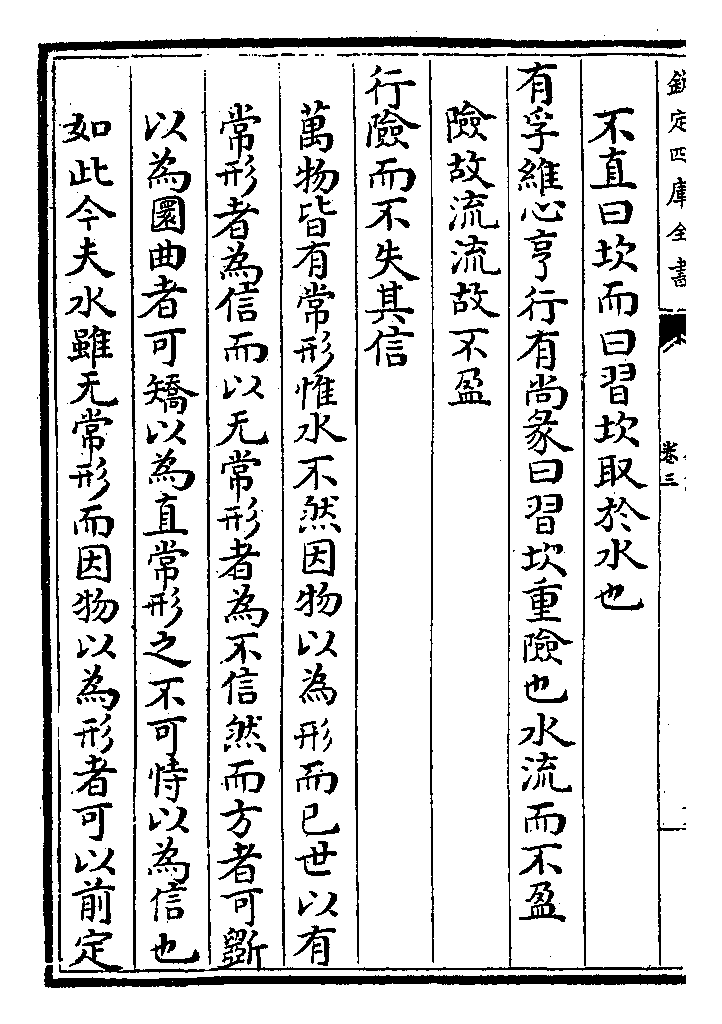 欽定四庫全書
卷三
不直曰坎而曰習坎取於水也
有孚維心亨行有尚彖曰習坎重險也水流而不盈
險故流流故不盈
行險而不失其信
萬物皆有常形惟水不然因物以為形而已世以有
常形者為信而以无常形者為不信然而方者可斵
以為圜曲者可矯以為直常形之不可恃以為信也
如此今夫水雖无常形而因物以為形者可以前定